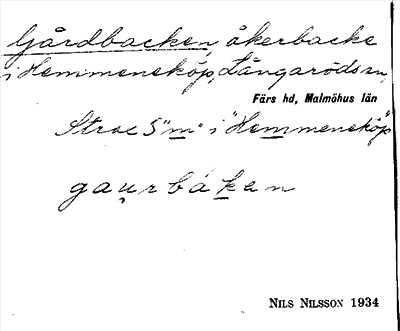 Gårdbacken, åkerbacke
i Hemmeneköp, Långaröds sn,
Färs hd, Malmöhus län
Strax S "m" i "Hemmeneköp"
gau̯rbáken
NILS NILSSON 1934